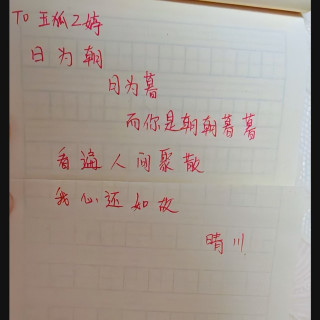 TO 玉狐乙婷
日为朝
日为暮
而你是朝朝暮暮
看遍人间聚散
我心还如故
晴川